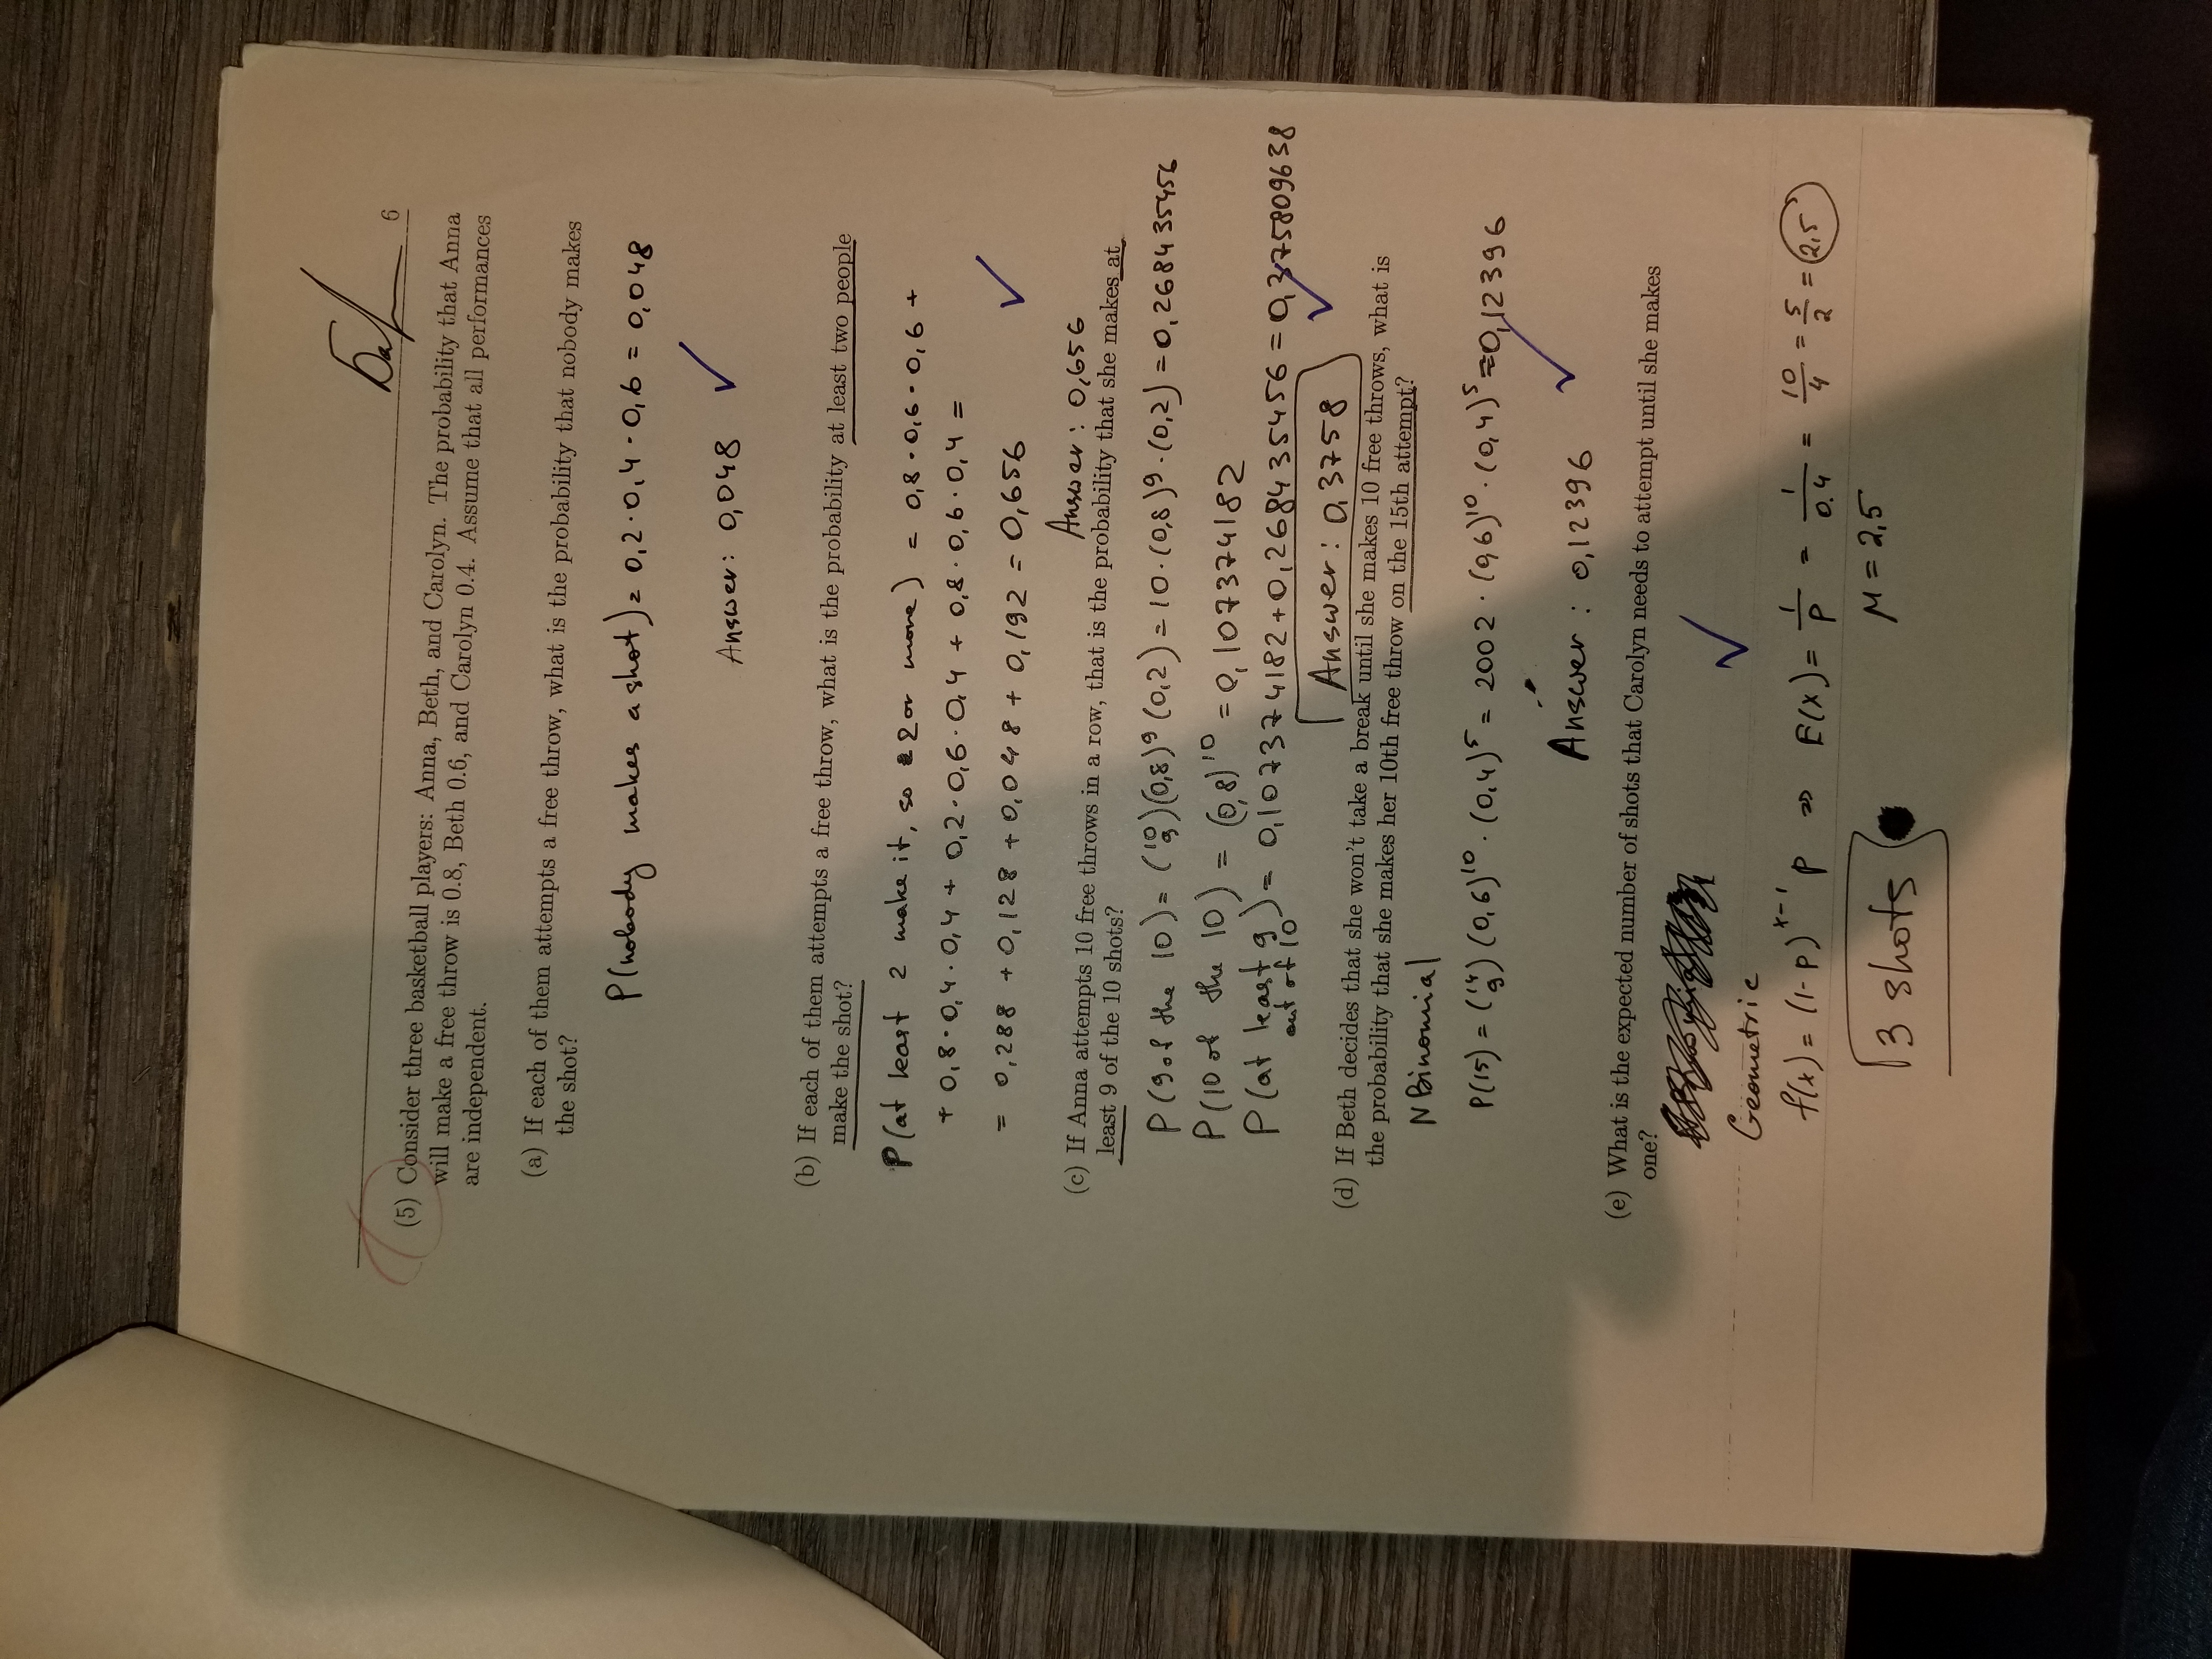 6
(5) Consider three basketball players: Anna, Beth, and Carolyn. The probability that Anna
will make a free throw is 0.8, Beth 0.6, and Carolyn 0.4. Assume that all performances
are independent.
(a) If each of them attempts a free throw, what is the probability that nobody makes
the shot?
P(nobody makes a shot) = 0,2·0,4·0,6 = 0,048
Answer: 0,048 ✓
(b) If each of them attempts a free throw, what is the probability at least two people
make the shot?
P(at least 2 make it, so 2 or more) = 0,8·0,6·0,6 +
+ 0,8·0,4·0,4 + 0,2·0,6·0,4 + 0,8·0,6·0,4 =
= 0,288 + 0,128 + 0,048 + 0,192 = 0,656 ✓
Answer: 0,656
(c) If Anna attempts 10 free throws in a row, that is the probability that she makes at
least 9 of the 10 shots?
P(9 of the 10) = (10 9)(0,8)⁹(0,2) = 10·(0,8)⁹·(0,2) = 0,268435456
P(10 of the 10) = (0,8)¹⁰ = 0,107374182
P(at least 9 out of 10) = 0,107374182 + 0,268435456 = 0,375809638
Answer: 0,3758 ✓
(d) If Beth decides that she won't take a break until she makes 10 free throws, what is
the probability that she makes her 10th free throw on the 15th attempt?
NBinomial
P(15) = (14 9)(0,6)¹⁰·(0,4)⁵ = 2002·(0,6)¹⁰·(0,4)⁵ ≈ 0,12396
Answer: 0,12396 ✓
(e) What is the expected number of shots that Carolyn needs to attempt until she makes
one?
✓
Geometric
f(x) = (1-p)ˣ⁻¹ p ⇒ E(x) = 1/p = 1/0.4 = 10/4 = 5/2 = 2,5
μ = 2,5
3 shots